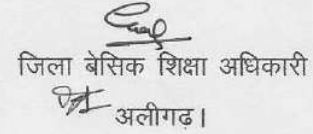 जिला बेसिक शिक्षा अधिकारी
अलीगढ़।